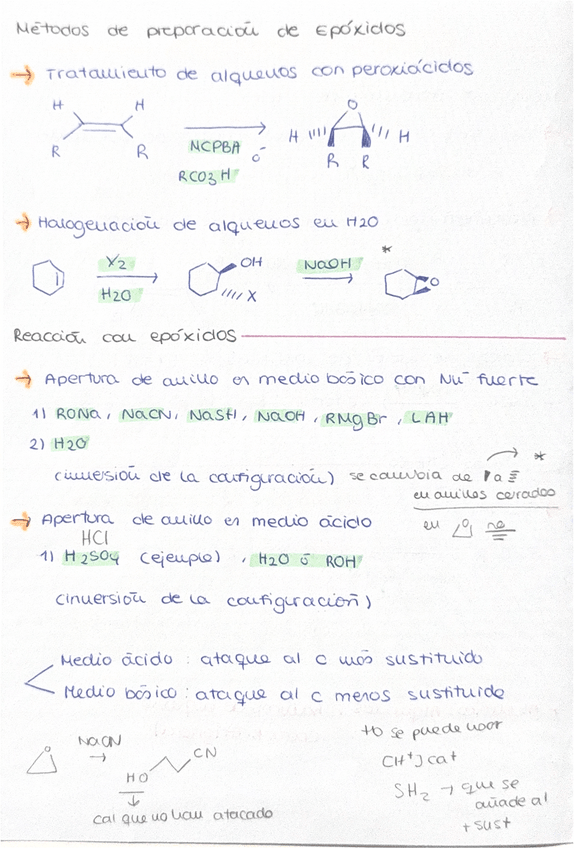 Métodos de preparación de Epóxidos
→ Tratamiento de alquenos con peroxiácidos
H H O
R R NCPBA ó H H
RCO3H R R
→ Halogenación de alquenos en H2O
X2 OH NaOH *
H2O X O
Reacción con epóxidos
→ Apertura de anillo en medio básico con Nu⁻ fuerte
1) RONa, NaCN, NaSH, NaOH, RMgBr, LAH
2) H2O
(inversión de la configuración) se cambia de a *
en anillos cerrados
→ Apertura de anillo en medio ácido en O no
HCl
1) H2SO4 (ejemplo), H2O ó ROH
(inversión de la configuración)
Medio ácido : ataque al C más sustituido
Medio básico : ataque al C menos sustituido
O NaCN → CN
HO
↓
Cal que no han atacado
tb se puede usar
CH⁺) cat
SH2 → que se
añade al
+ sust